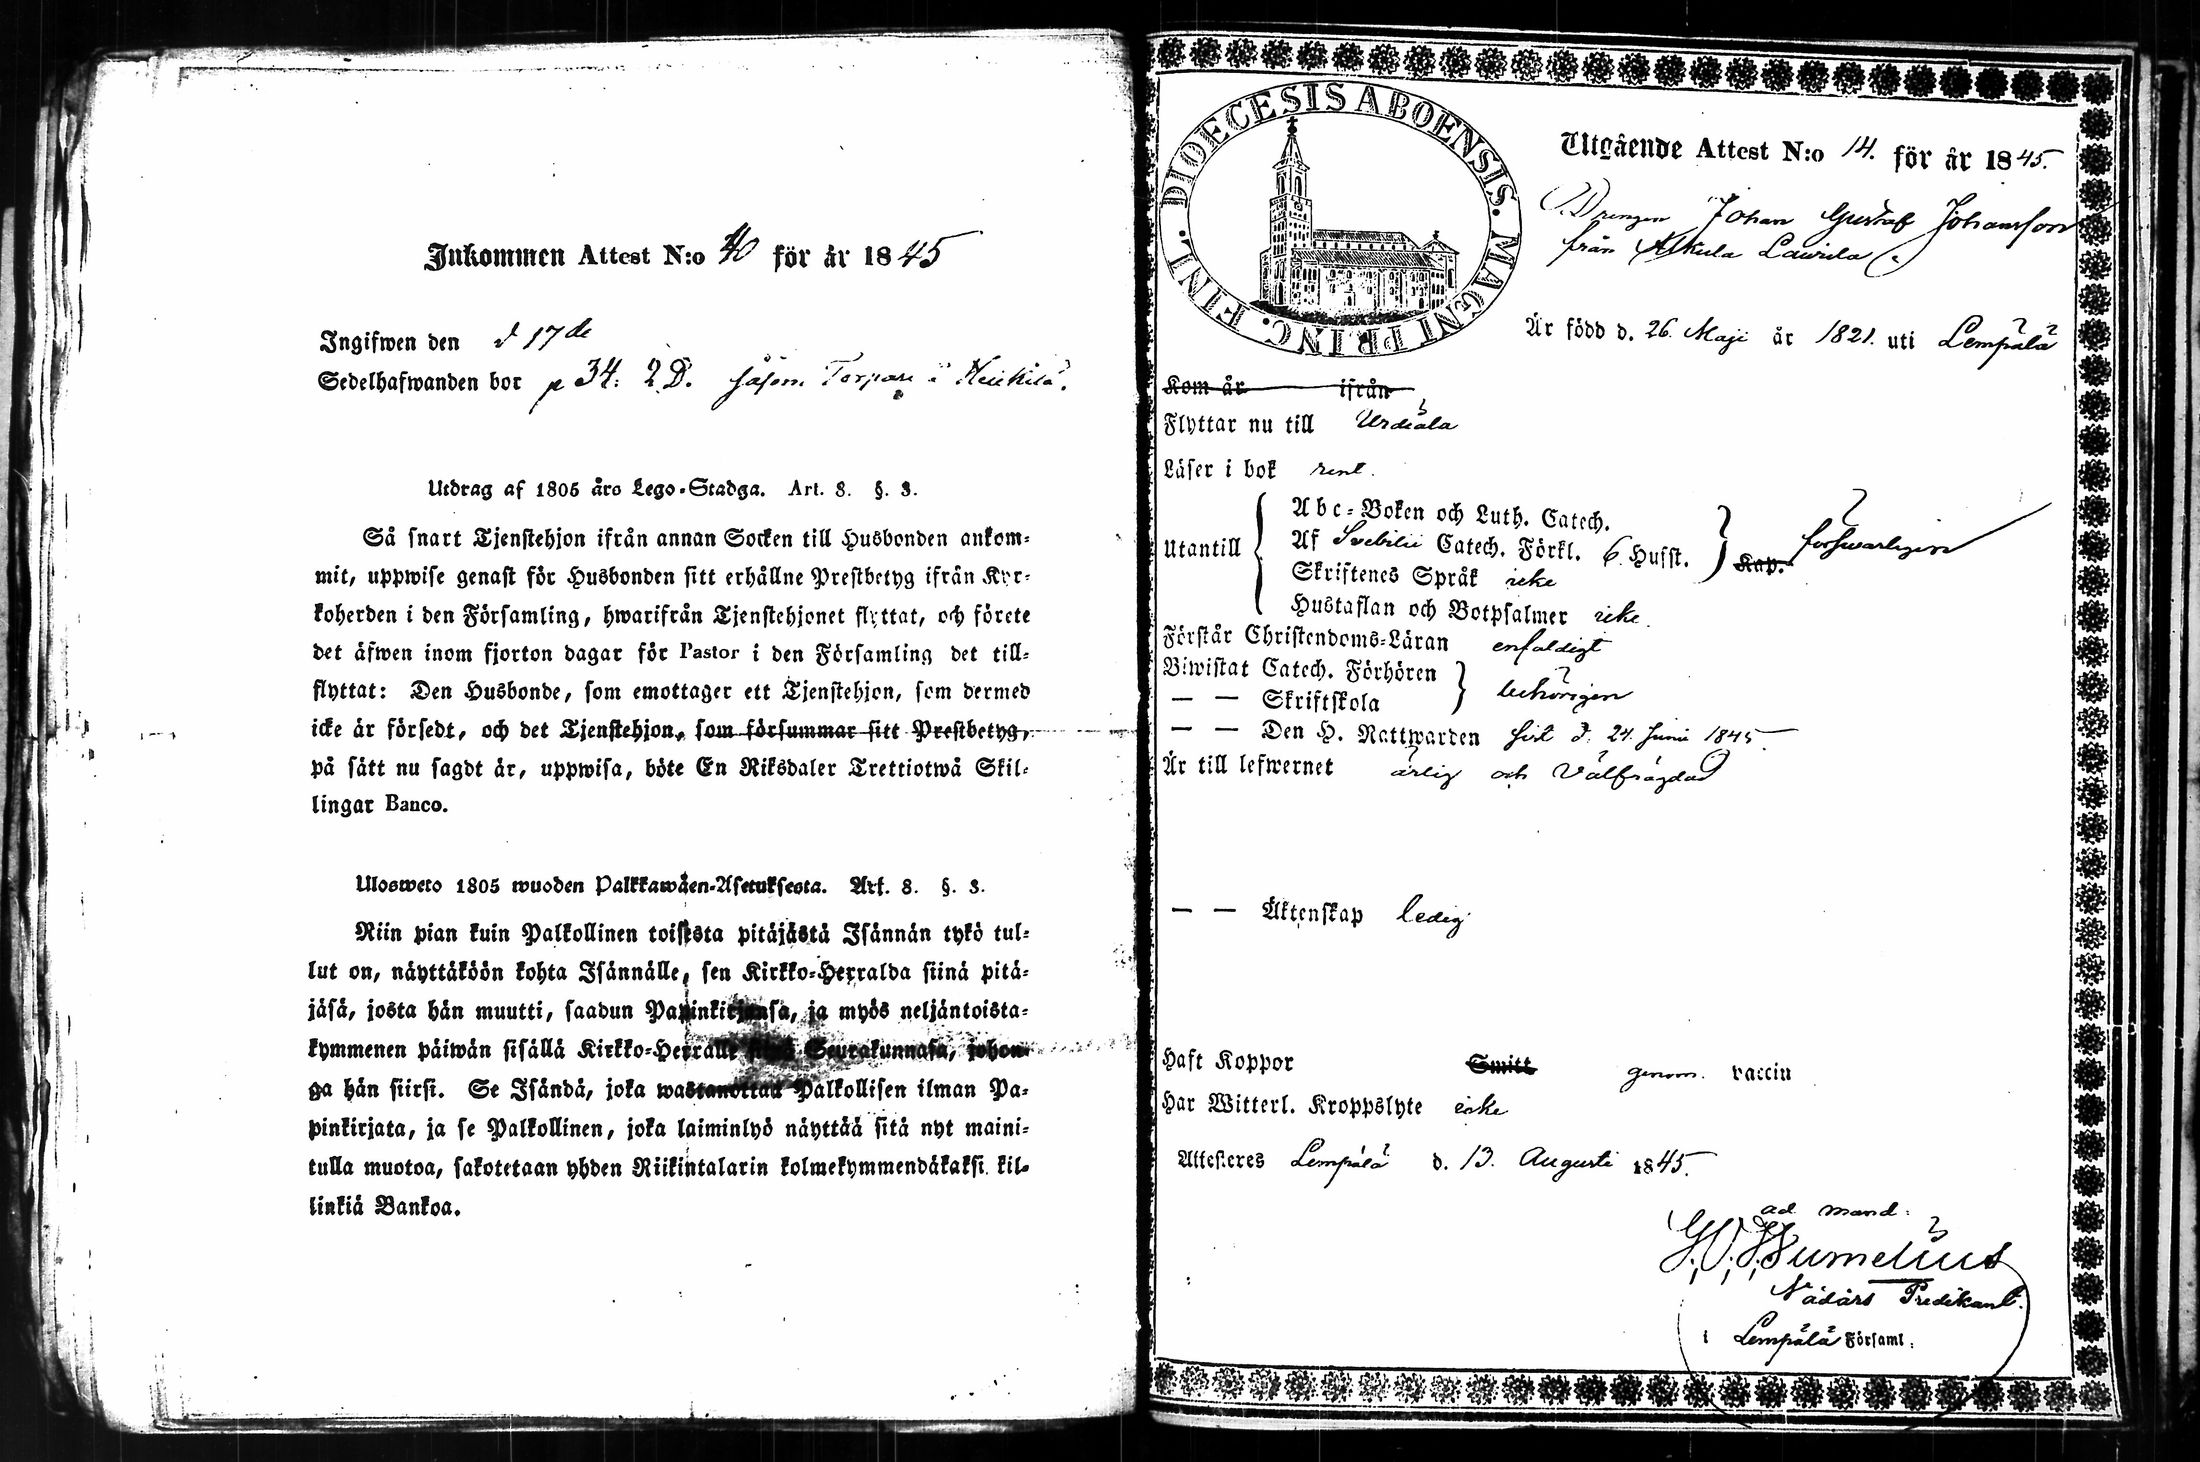 Inkommen Attest N:o 40 för år 1845
Ingifwen den d 17de
Sedelhafwanden bor p 34: 2 D. såsom Torpare i Heikilä.
Utdrag af 1805 års Lego-Stadga. Art. 8. §. 3.
Så snart Tjenstehjon ifrån annan Socken till Husbonden ankom-
mit, uppwise genast för Husbonden sitt erhållne Prestbetyg ifrån Kyr-
koherden i den Församling, hwarifrån Tjenstehjonet flyttat, och förete
det äfwen inom fjorton dagar för Pastor i den Församling det till-
flyttat: Den Husbonde, som emottager ett Tjenstehjon, som dermed
icke är försedt, och det Tjenstehjon, som försummar sitt Prestbetyg,
på sätt nu sagdt är, uppwisa, böte En Riksdaler Trettiotwå Skil-
lingar Banco.
Ulosweto 1805 wuoden Palkkawäen-Asetuksesta. Art. 8. §. 3.
Niin pian kuin Palkollinen toisesta pitäjästä Isännän tykö tul-
lut on, näyttäköön kohta Isännälle, sen Kirkko-Herralda siinä pitä-
jäsä, josta hän muutti, saadun Papinkirjansa, ja myös neljäntoista-
kymmenen päiwän sisällä Kirkko-Herralle siinä Seurakunnasa, johon-
ga hän siirsi. Se Isändä, joka wastanottaa Palkollisen ilman Pa-
pinkirjata, ja se Palkollinen, joka laiminlyö näyttää sitä nyt maini-
tulla muotoa, sakotetaan yhden Riikintalarin kolmekymmendäkaksi kil-
linkiä Bankoa.
DIOECESIS ABOENSIS. MAGNI PRINC. FINL.
Utgående Attest N:o 14. för år 1845.
Drengen Johan Gustaf Johansson
från Alkula Laurila
Är född d. 26. Maji år 1821. uti Lempälä
Kom år ifrån
Flyttar nu till Urdiala
Läser i bok rent.
Utantill
Abc-Boken och Luth. Catech.
Af Svebilii Catech. Förkl. 6. Hufst. Kap. försvarligen
Skriftenes Språk icke
Hustaflan och Botpsalmer icke.
Förstår Christendoms-Läran enfaldigt
Biwistat Catech. Förhören
— — Skriftskola behörigen
— — Den H. Nattwarden sist d. 24. Junii 1845.
Är till lefwernet ärlig och Välfrägdad
— — Äktenskap ledig
Haft Koppor Smitt genom. vaccin
Har Witterl. Kroppslyte icke
Attesteres Lempälä d. 13. Augusti 1845.
ad mand:
G. V. Humelius
Nådårs Predikant.
i Lempälä Församl: